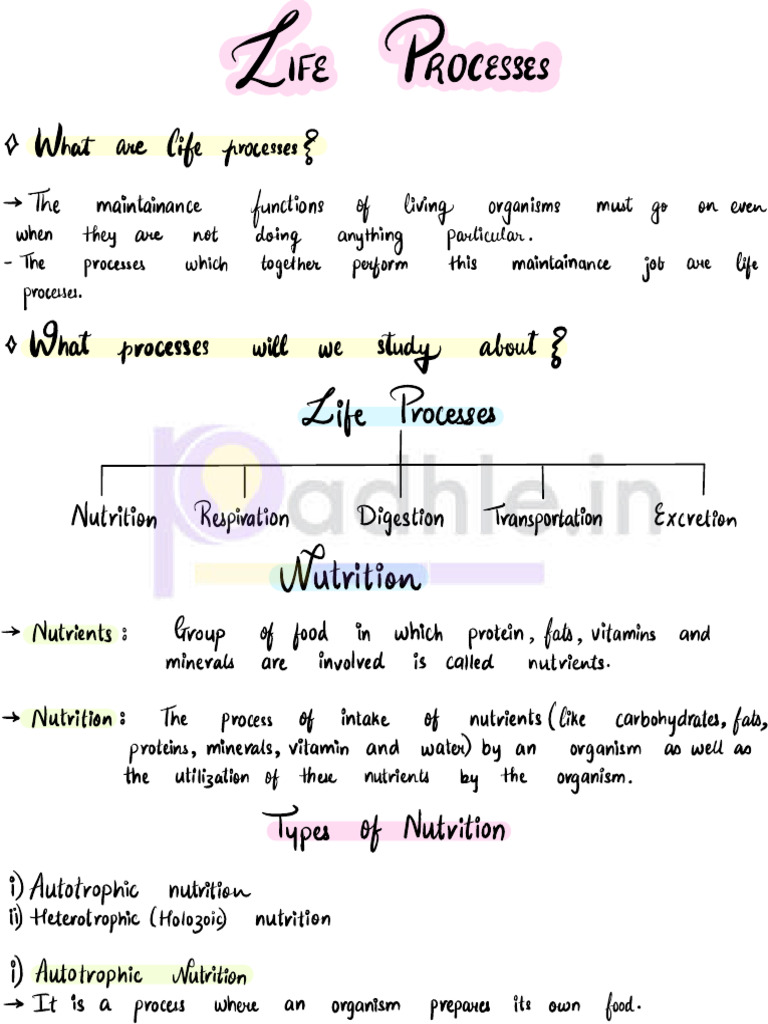 LIFE PROCESSES
◇ What are life processes?
→ The maintainance functions of living organisms must go on even
when they are not doing anything particular.
- The processes which together perform this maintainance job are life
processes.
◇ What processes will we study about?
Life Processes
Nutrition Respiration Digestion Transportation Excretion
padhle.in
Nutrition
→ Nutrients: Group of food in which protein, fats, vitamins and
minerals are involved is called nutrients.
→ Nutrition: The process of intake of nutrients (like carbohydrates, fats,
proteins, minerals, vitamin and water) by an organism as well as
the utilization of these nutrients by the organism.
Types of Nutrition
i) Autotrophic nutrition
ii) Heterotrophic (Holozoic) nutrition
i) Autotrophic Nutrition
→ It is a process where an organism prepares its own food.